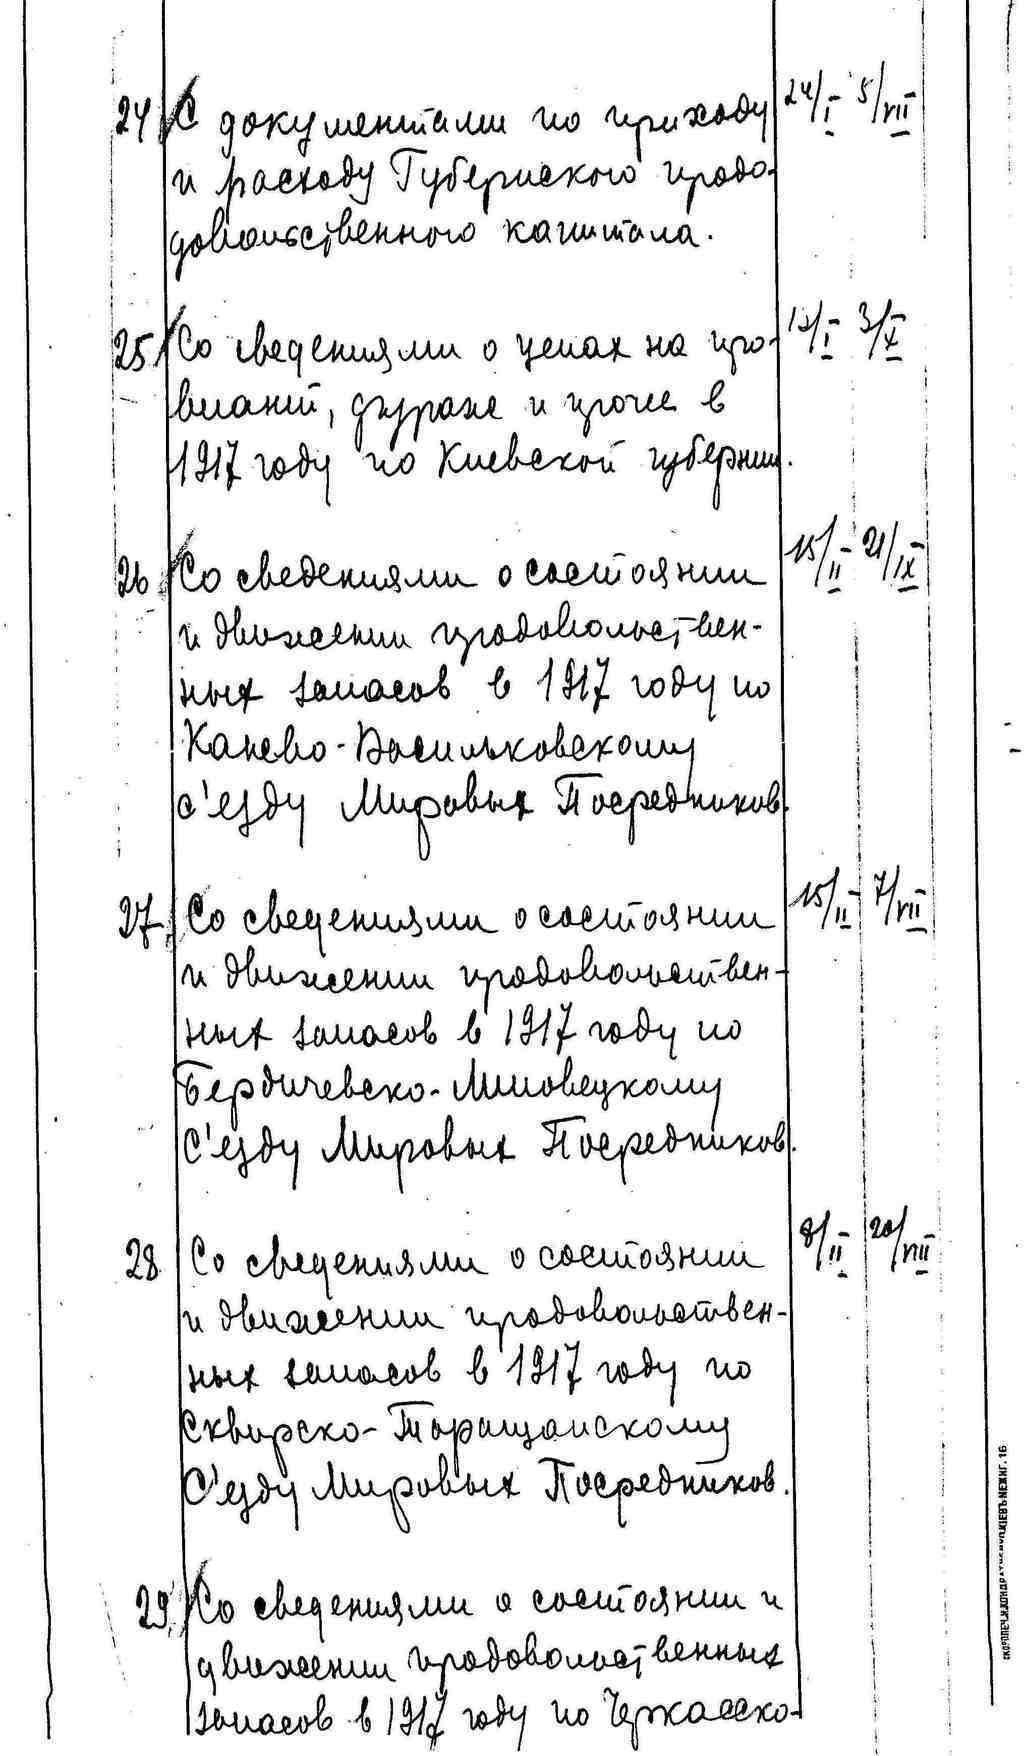 24 С документами по приходу 24/I 5/VII
и расходу Губернского продо-
довольственного капитала.
25 Со сведениями о ценах на про- 12/I 3/X
виант, фураже и прочее в
1917 году по Киевской губернии.
26 Со сведениями о состоянии 15/II 21/IX
и движении продовольствен-
ных запасов в 1917 году по
Канево-Васильковскому
с'езду Мировых Посредников.
27 Со сведениями о состоянии 15/II 7/VII
и движении продовольствен-
ных запасов в 1917 году по
Бердичевско-Липовецкому
С'езду Мировых Посредников.
28 Со сведениями о состоянии 8/II 20/VIII
и движении продовольствен-
ных запасов в 1917 году по
Сквирско-Таращанскому
С'езду Мировых Посредников.
29 Со сведениями о состоянии и
движении продовольственных
запасов в 1917 году по Черкасско-
КІЕВЪ МЕЖИГ. 16